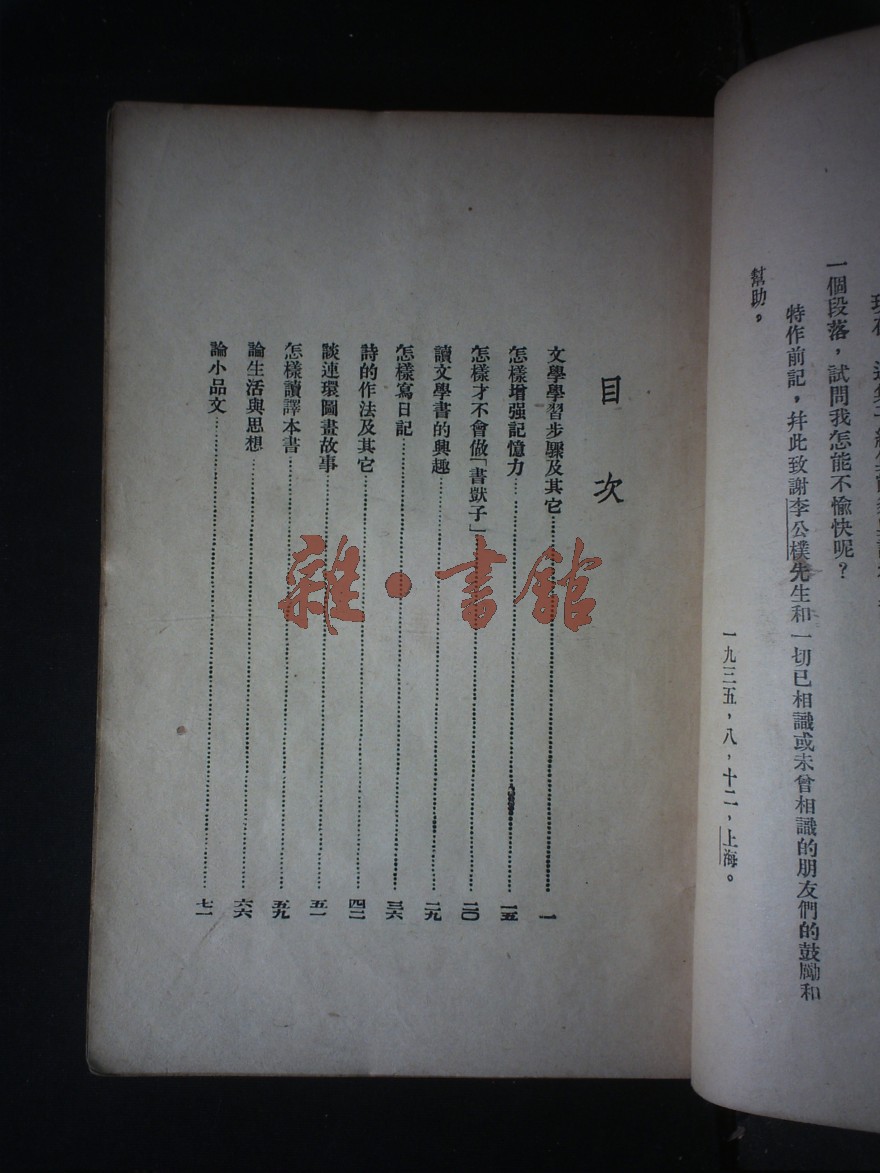 一個段落，試問我怎能不愉快呢？
特作前記，幷此致謝李公樸先生和一切已相識或未曾相識的朋友們的鼓勵和
幫助。
一九三五，八，十二，上海。
目次
文學學習步驟及其它……一
怎樣增强記憶力……一五
怎樣才不會做「書獃子」……二〇
讀文學書的興趣……二九
怎樣寫日記……三六
詩的作法及其它……四二
談連環圖畫故事……五一
怎樣讀譯本書……五九
論生活與思想……六六
論小品文……七一
雜·書館